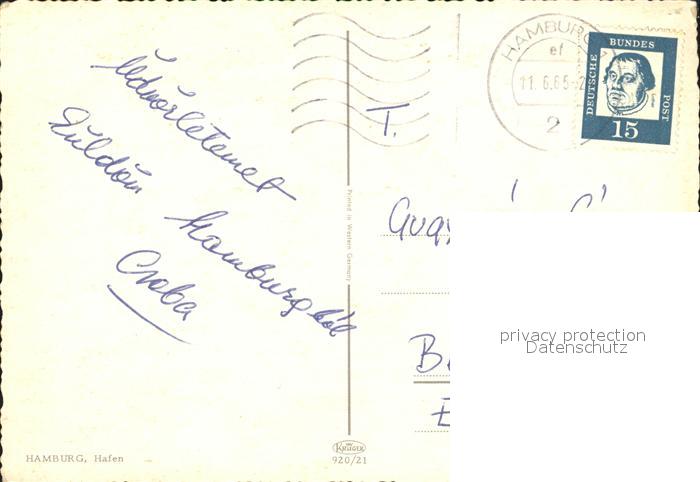 Üdvözletemet
küldöm
Hamburgból
Csaba
T.
Printed in Western Germany
HAMBURG
ef
11.6.65-2
2
DEUTSCHE
BUNDES
POST
15
privacy protection
Datenschutz
HAMBURG, Hafen
KRÜGER
920/21